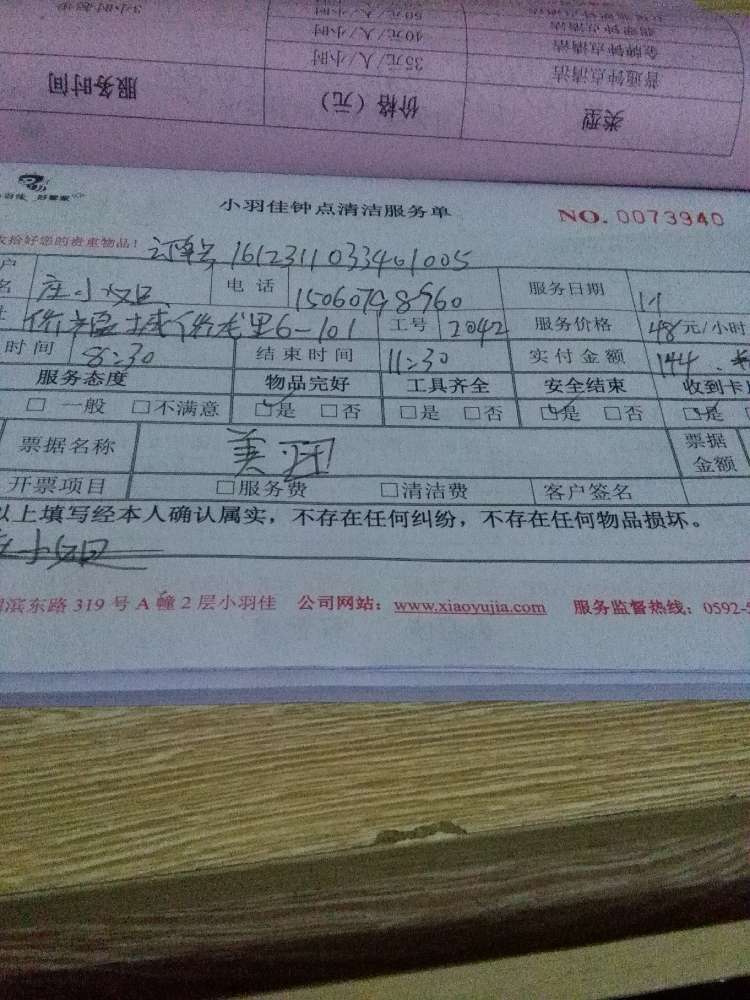 类型 价格（元） 服务时间
普通钟点清洁 35元/人/小时
金牌钟点清洁 40元/人/小时
钟点清洁 50元/人/小时 3小时起
小羽佳钟点清洁服务单 NO. 0073940
拾好您的贵重物品！ 订单号 1612311033401005
户名 庄小 电话 15060798960 服务日期 1.1
侨福城侨龙里6-101 工号 2042 服务价格 48元/小时
时间 8:30 结束时间 11:30 实付金额 144.
服务态度 物品完好 工具齐全 安全结束 收到卡
□一般 □不满意 □是 □否 □是 □否 □是 □否 □是
票据名称 美 票据金额
开票项目 □服务费 □清洁费 客户签名
以上填写经本人确认属实，不存在任何纠纷，不存在任何物品损坏。
滨东路 319 号 A 幢 2 层小羽佳 公司网站：www.xiaoyujia.com 服务监督热线：0592-5